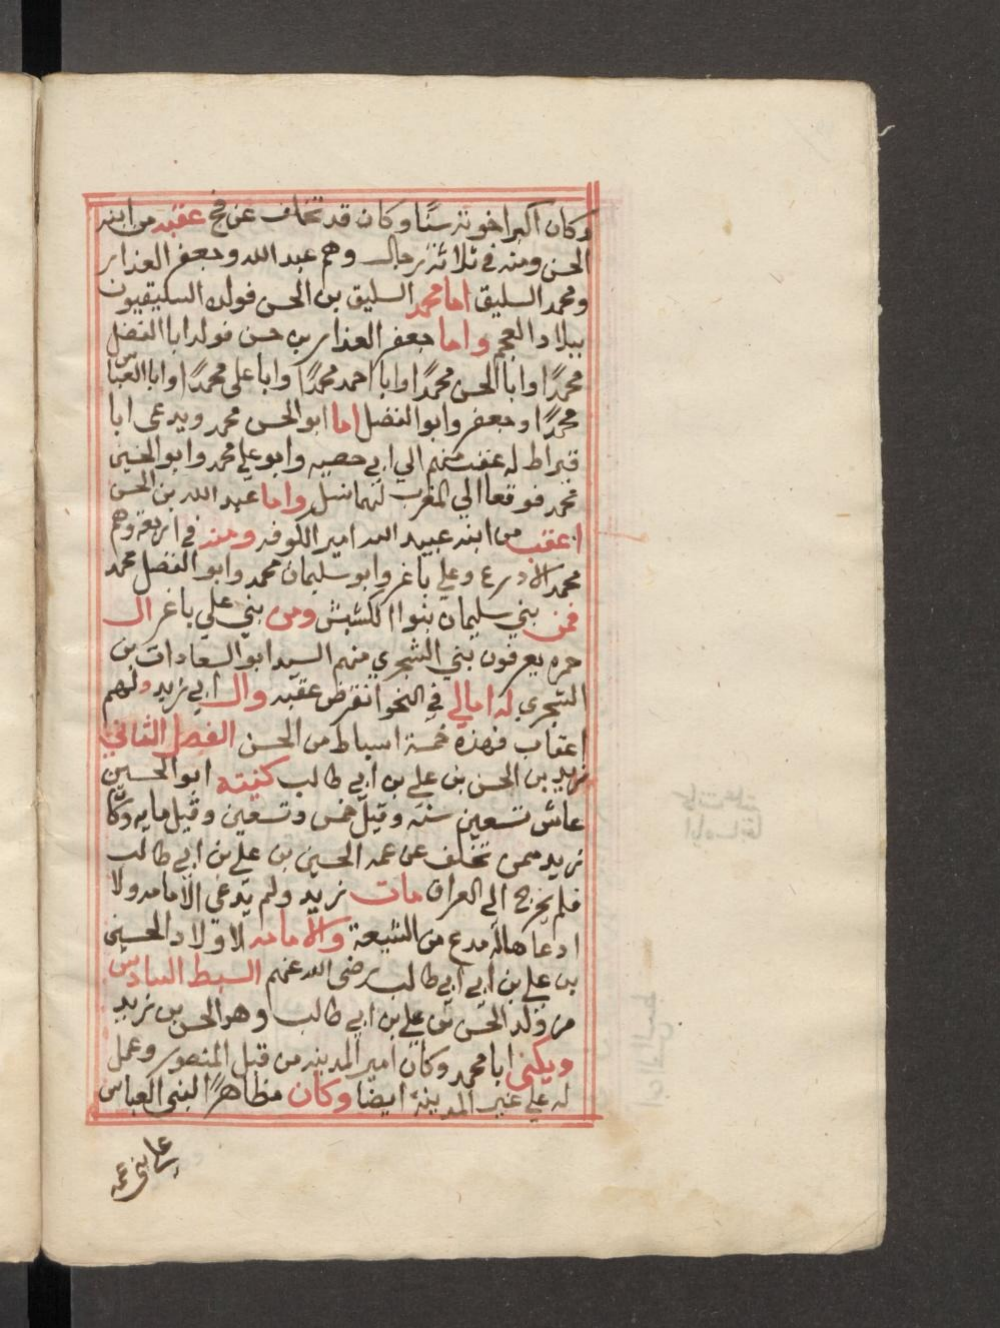 وكان اكبر اخوته سنًا وكان قد تخلف عن فخ عقبه من ابنه
الحسن ومنه في ثلاثة رجال وهم عبد الله وجعفر الغدار
ومحمد السليق اما محمد السليق بن الحسن فولده السليقيون
ببلاد العجم واما جعفر الغدار بن حسن فولد ابا الفضل
محمدًا وابا الحسن محمدًا وابا احمد محمدًا وابا علي محمدًا وابا العباس
محمدًا وجعفر وابو الفضل اما ابو الحسن محمد ويدعى ابا
قيراط له عقب منهم الي ابي وابو علي محمد وابو الحسين
محمد فوقعا الي المغرب لهما نسل واما عبد الله بن الحسن
اعقب من ابنه عبيد الله امير الكوفه ومنه في اربعة وهم
محمد الادرع وعلي باغر وابو سليمان محمد وابو الفضل محمد
فمن بني سليمان بنوا الكشيش ومن بني علي باغر ال
حره يعرفون بني الشجري منهم السيد ابو السعادات بن
الشجري له امالي في النحو انقرض عقبه وال ابي زيد ولهم
اعقاب فهذه خمسة اسباط من الحسن الفصل الثاني
زيد بن الحسن بن علي بن ابي طالب كنيته ابو الحسين
عاش تسعين سنه وقيل خمس وتسعين وقيل مايه وكان
زيد ممن تخلف عن عمه الحسين بن علي بن ابي طالب
فلم يخرج الي العراق مات زيد ولم يدعي الامامه ولا
ادعاها له مدع من الشيعة والامامه لاولاد الحسين
بن علي بن ابي ابي طالب رضى الله عنهم السبط السادس
من ولد الحسن بن علي بن ابي طالب وهو الحسن بن زيد
ويكنى ابا محمد وكان امير المدينه من قبل المنصور وعمل
له علي غير المدينة ايضا وكان مظاهرًا لبني العباس
علي بني عمه